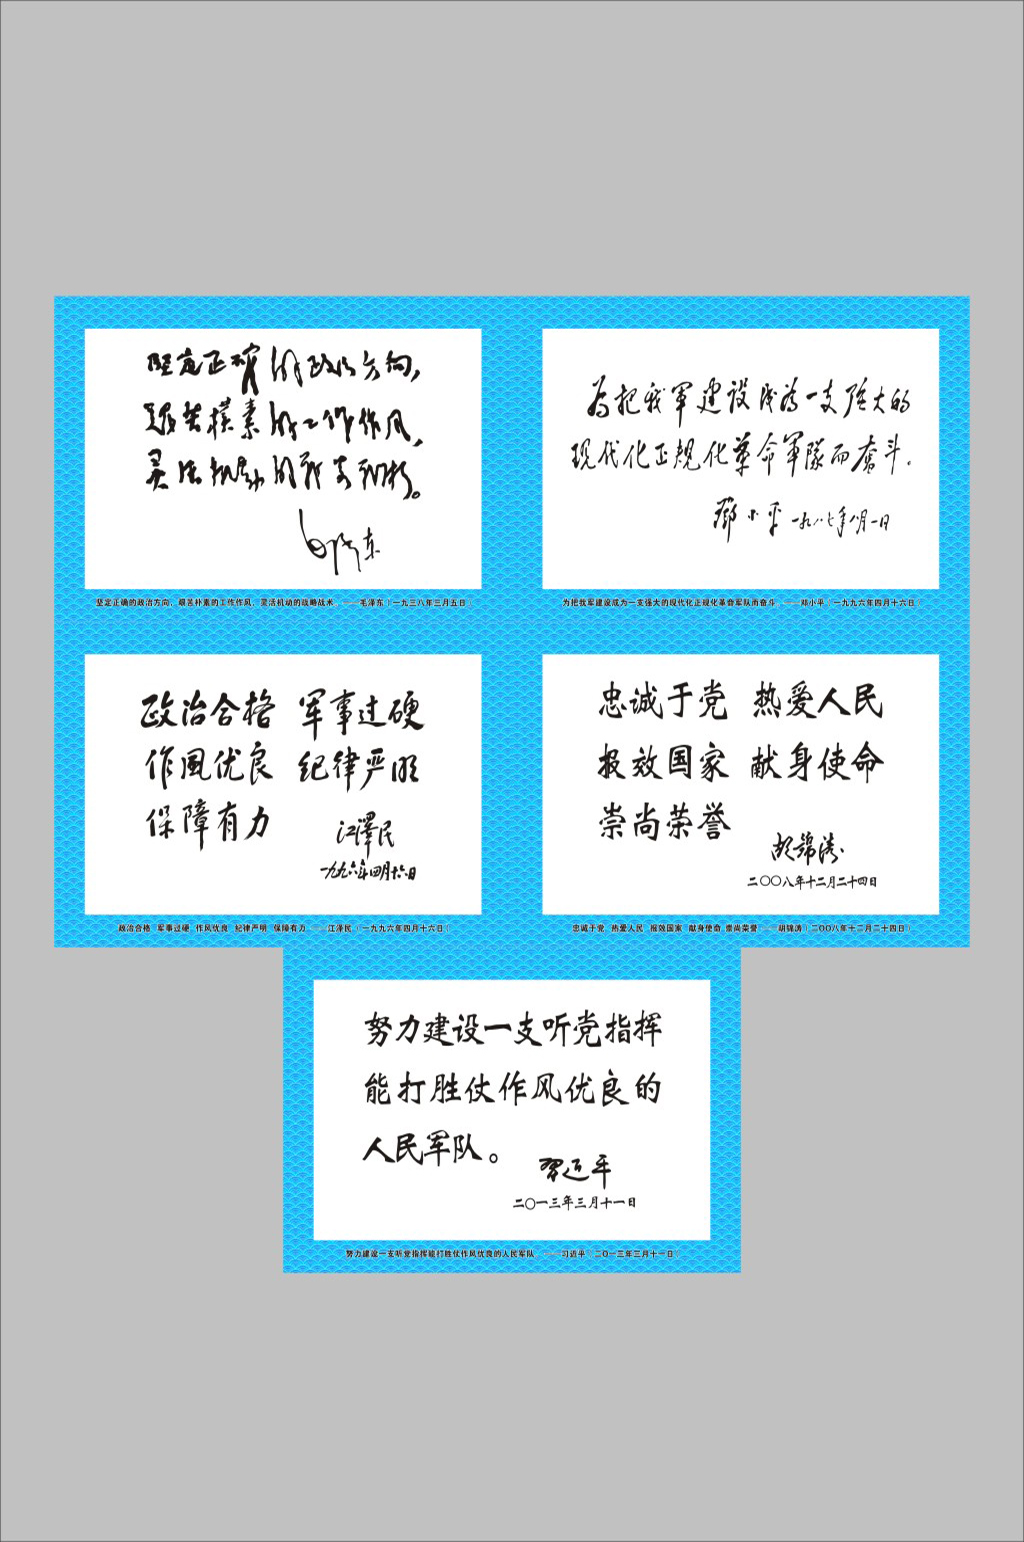 坚定正确的政治方向，
艰苦朴素的工作作风，
灵活机动的战略战术。
毛泽东
坚定正确的政治方向，艰苦朴素的工作作风，灵活机动的战略战术。——毛泽东（一九三八年三月五日
为把我军建设成为一支强大的
现代化正规化革命軍隊而奮斗.
鄧小平 一九八七年八月一日
为把我军建设成为一支强大的现代化正规化革命军队而奋斗。——邓小平（一九九六年四月十六日）
政治合格 军事过硬
作風优良 纪律严明
保障有力
江澤民
一九九六年四月十六日
政治合格 军事过硬 作风优良 纪律严明 保障有力 ——江泽民（一九九六年四月十六日）
忠诚于党 热爱人民
报效国家 献身使命
崇尚荣誉
胡锦涛
二〇〇八年十二月二十四日
忠诚于党 热爱人民 报效国家 献身使命 崇尚荣誉 ——胡锦涛（二〇〇八年十二月二十四日）
努力建设一支听党指挥
能打胜仗作风优良的
人民军队。
習近平
二〇一三年三月十一日
努力建设一支听党指挥能打胜仗作风优良的人民军队。——习近平（二〇一三年三月十一日）